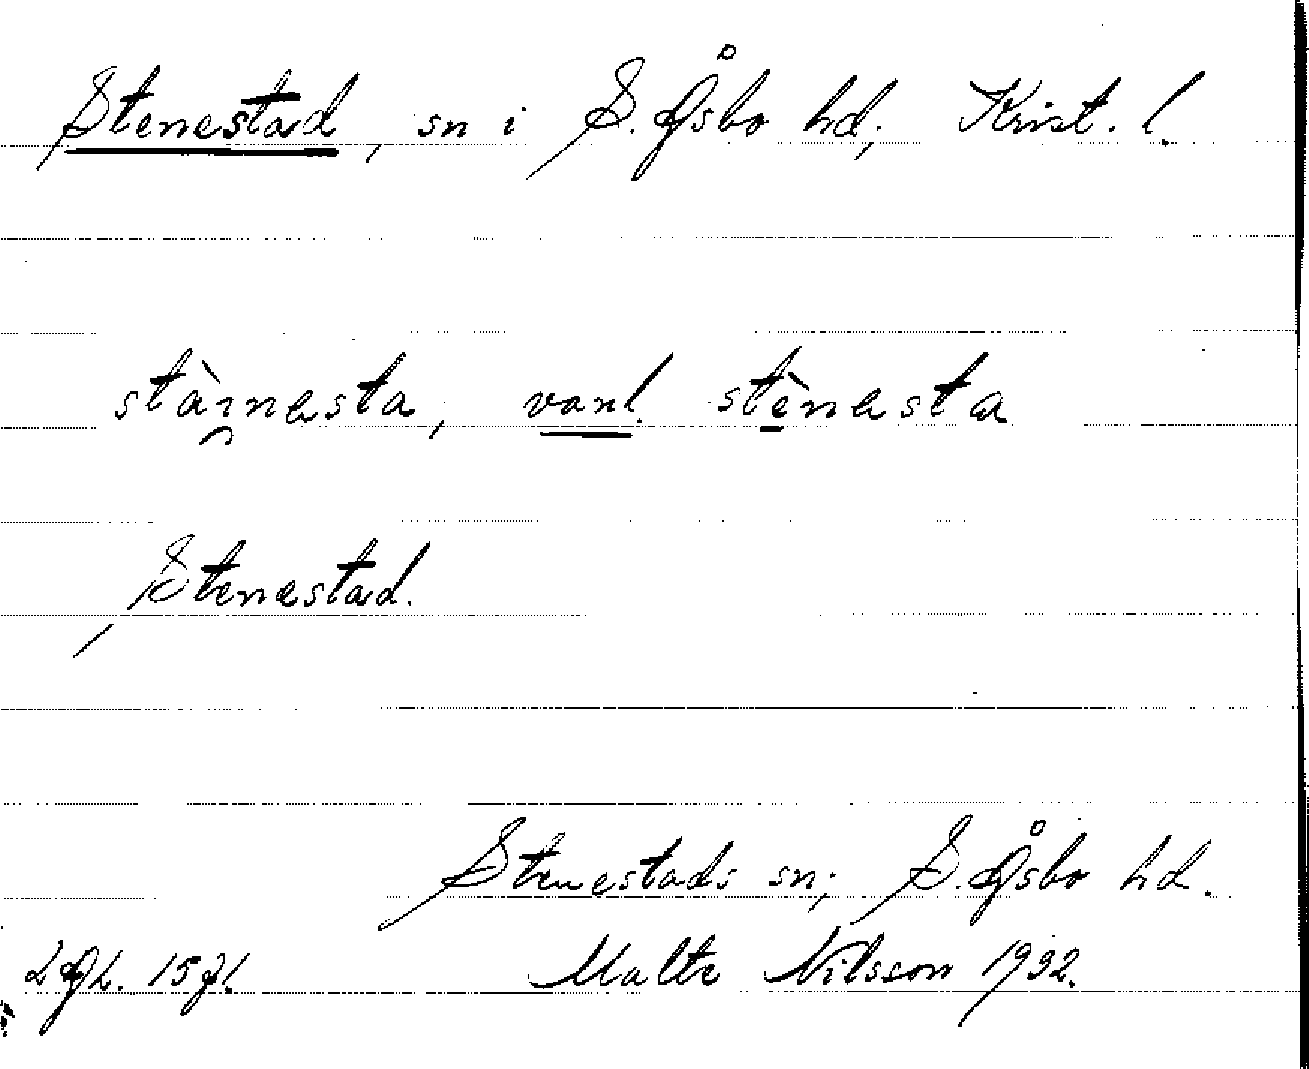 Stenestad, sn i S. Åsbo hd, Krist. l.
stàinesta, vanl. stènesta
Stenestad.
Stenestads sn, S. Åsbo hd.
Malte Nilsson 1932.